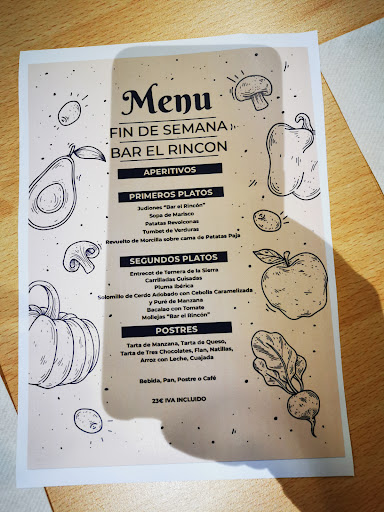 Menu
FIN DE SEMANA
BAR EL RINCON
APERITIVOS
PRIMEROS PLATOS
Judiones "Bar el Rincón"
Sopa de Marisco
Patatas Revolconas
Tumbet de Verduras
Revuelto de Morcilla sobre cama de Patatas Paja
SEGUNDOS PLATOS
Entrecot de Ternera de la Sierra
Carrilladas Guisadas
Pluma Ibérica
Solomillo de Cerdo Adobado con Cebolla Caramelizada
y Puré de Manzana
Bacalao con Tomate
Mollejas "Bar el Rincón"
POSTRES
Tarta de Manzana, Tarta de Queso,
Tarta de Tres Chocolates, Flan, Natillas,
Arroz con Leche, Cuajada
Bebida, Pan, Postre o Café
23€ IVA INCLUIDO